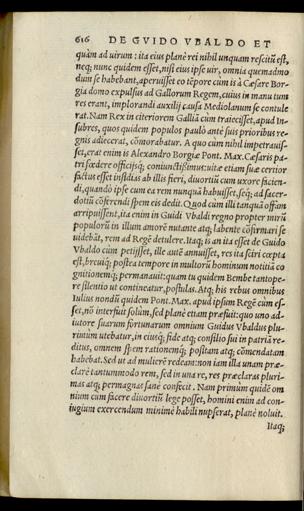 616 DE GVIDO VBALDO ET
quàm ad uirum : ita eius planè rei nihil unquam rescitū est,
neq; nunc quidem esset, nisi eius ipse uir, omnia quemadmo
dum se habebant, aperuisset eo tēpore cùm is à Cæsare Bor-
gia domo expulsus ad Gallorum Regem, cuius in manu tum
res erant, implorandi auxilij causa Mediolanum se contule
rat. Nam Rex in citeriorem Galliā cùm traiecisset, apud In-
subres, quos quidem populos paulò ante suis prioribus re-
gnis adiecerat, cōmorabatur. A quo cùm nihil impetrauis-
set, erat enim is Alexandro Borgiæ Pont. Max. Cæsaris pa-
tri fœdere officijsq; coniunctissimus: uitæ etiam suæ certior
factus esset insidias ab illis fieri, diuortiū cum uxore facien-
di, quandò ipse cum ea rem nunquā habuisset, seq; ad sacer-
dotiū cōferendi spem eis dedit. Quod cùm illi tanquā offam
arripuissent, ita enim in Guidi Vbaldi regno propter mirū
populorū in illum amorē nutante atq; labente cōfirmari se
uidebāt, rem ad Regē detulere. Itaq; is an ita esset de Guido
Vbaldo cùm petijsset, ille autē annuisset, res ita sciri cœpta
est, breuiq; postea tempore in multorū hominum notitiā co
gnitionemq; permanauit: quam tu quidem Bembe tantope-
re silentio ut contineatur, postulas. Atq; his rebus omnibus
Iulius nondū quidem Pont. Max. apud ipsum Regē cùm es-
set, nō interfuit solùm, sed planè etiam præfuit: quo uno ad-
iutore suarum fortunarum omnium Guidus Vbaldus plu-
rimùm utebatur, in eiusq; fide atq; consilio sui in patriā re-
ditus, omnem spem rationemq; positam atq; cōmendatam
habebat. Sed ut ad mulierē redeam: non iam illa unam præ-
clarè tantummodo rem, sed in una re, res præclaras pluri-
mas atq; permagnas sanè confecit. Nam primùm quidē om
nium cùm facere diuortiū lege posset, homini enim ad con-
iugium exercendum minimè habili nupserat, planè noluit.
Itaq;